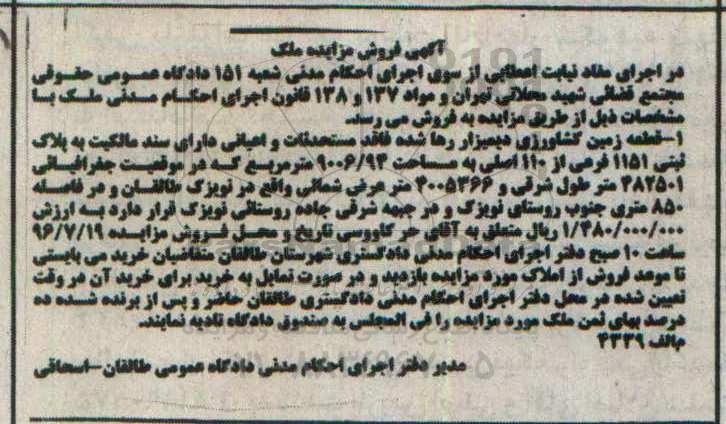 آگهی فروش مزایده ملک
در اجرای مفاد نیابت اعطایی از سوی اجرای احکام مدنی شعبه ۱۵۱ دادگاه عمومی حقوقی
مجتمع قضائی شهید محلاتی تهران و مواد ۱۳۷ و ۱۳۸ قانون اجرای احکام مدنی ملک با
مشخصات ذیل از طریق مزایده به فروش می رسد.
۱-قطعه زمین کشاورزی دیمیزار رها شده فاقد مستحدثات و اعیانی دارای سند مالکیت به پلاک
ثبتی ۱۱۵۱ فرعی از ۱۱۰ اصلی به مساحت ۹۰۰۶/۹۴ مترمربع که در موقعیت جغرافیائی
۴۸۲۵۰۱ متر طول شرقی و ۴۰۰۵۲۶۶ متر عرض شمالی واقع در نویزک طالقان و در فاصله
۸۵۰ متری جنوب روستای نویزک و در جبهه شرقی جاده روستائی نویزک قرار دارد به ارزش
۱/۴۸۰/۰۰۰/۰۰۰ ریال متعلق به آقای حر کاووسی تاریخ و محل فروش مزایده ۹۶/۷/۱۹
ساعت ۱۰ صبح دفتر اجرای احکام مدنی دادگستری شهرستان طالقان متقاضیان خرید می بایستی
تا موعد فروش از املاک مورد مزایده بازدید و در صورت تمایل به خرید برای خرید آن در وقت
تعیین شده در محل دفتر اجرای احکام مدنی دادگستری طالقان حاضر و پس از برنده شده ده
درصد بهای ثمن ملک مورد مزایده را فی المجلس به صندوق دادگاه تادیه نمایند.
م‌الف ۴۳۳۹
مدیر دفتر اجرای احکام مدنی دادگاه عمومی طالقان-اسحاقی